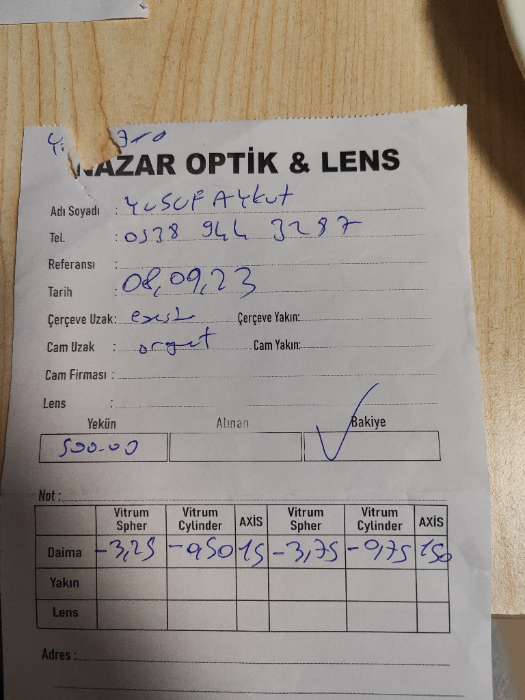 NAZAR OPTİK & LENS
Adı Soyadı : Yusuf Aykut
Tel. : 0538 944 3287
Referansı :
Tarih : 08,09,23
Çerçeve Uzak: Çerçeve Yakın:
Cam Uzak : Cam Yakın:
Cam Firması :
Lens :
Yekün Alınan Bakiye
500.00
Not :
Vitrum Spher Vitrum Cylinder AXİS Vitrum Spher Vitrum Cylinder AXİS
Daima -3,25 -0,50 15 -3,75 -0,75 150
Yakın
Lens
Adres :